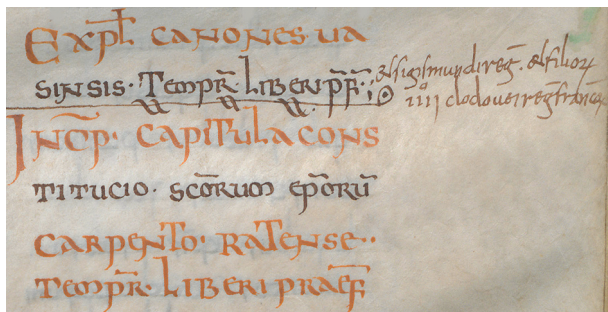 Expl̃ canones ua
sinsis · Tempr̃ Liberi p̃f̃ ; et sigismundi reg̃ . et filior̃
iiii° clodouei reg̃ franc̃
Inc̃p̃ · capitula cons
titucio · sc̃orum ep̃orũ
carpento · ratense ··
tempr̃ · liberi praef̃